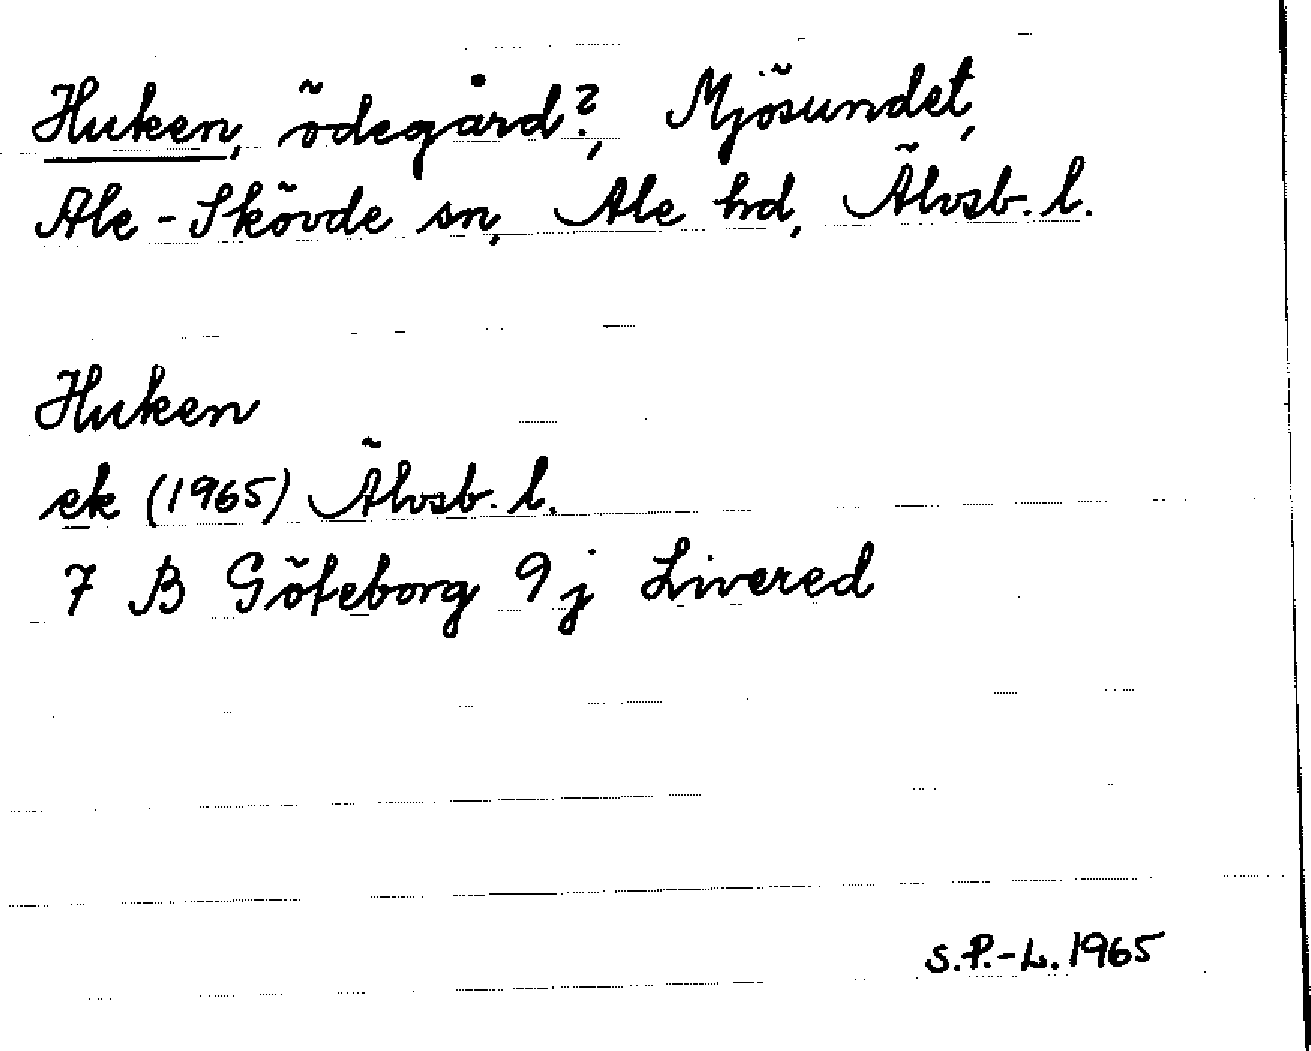 Huken, ödegård?, Mjösundet,
Ale-Skövde sn, Ale hd, Älvsb. l.
Huken
ek (1965) Älvsb. l.
7 B Göteborg 9j Livered
S.P.-L. 1965